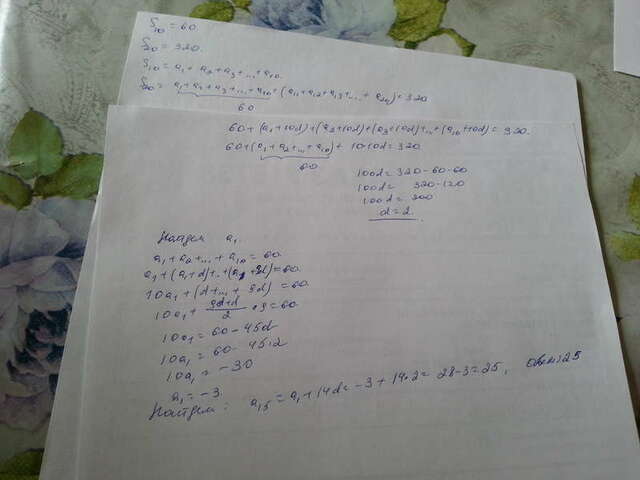 S₁₀ = 60.
S₂₀ = 320.
S₁₀ = a₁ + a₂ + a₃ + ... + a₁₀.
S₂₀ = a₁ + a₂ + a₃ + ... + a₁₀ + (a₁₁ + a₁₂ + a₁₃ + ... + a₂₀) = 320
60
60 + (a₁ + 10d) + (a₂ + 10d) + (a₃ + 10d) + ... + (a₁₀ + 10d) = 320.
60 + (a₁ + a₂ + ... + a₁₀) + 10·10d = 320
60
100d = 320 - 60 - 60
100d = 320 - 120
100d = 200
d = 2.
Найдем a₁.
a₁ + a₂ + ... + a₁₀ = 60.
a₁ + (a₁ + d) + ... + (a₁ + 9d) = 60.
10a₁ + (d + ... + 9d) = 60.
10a₁ + (9d + d)/2 · 9 = 60
10a₁ = 60 - 45d
10a₁ = 60 - 45·2
10a₁ = -30
a₁ = -3.
Найдем: a₁₅ = a₁ + 14d = -3 + 14·2 = 28 - 3 = 25, Ответ: 25